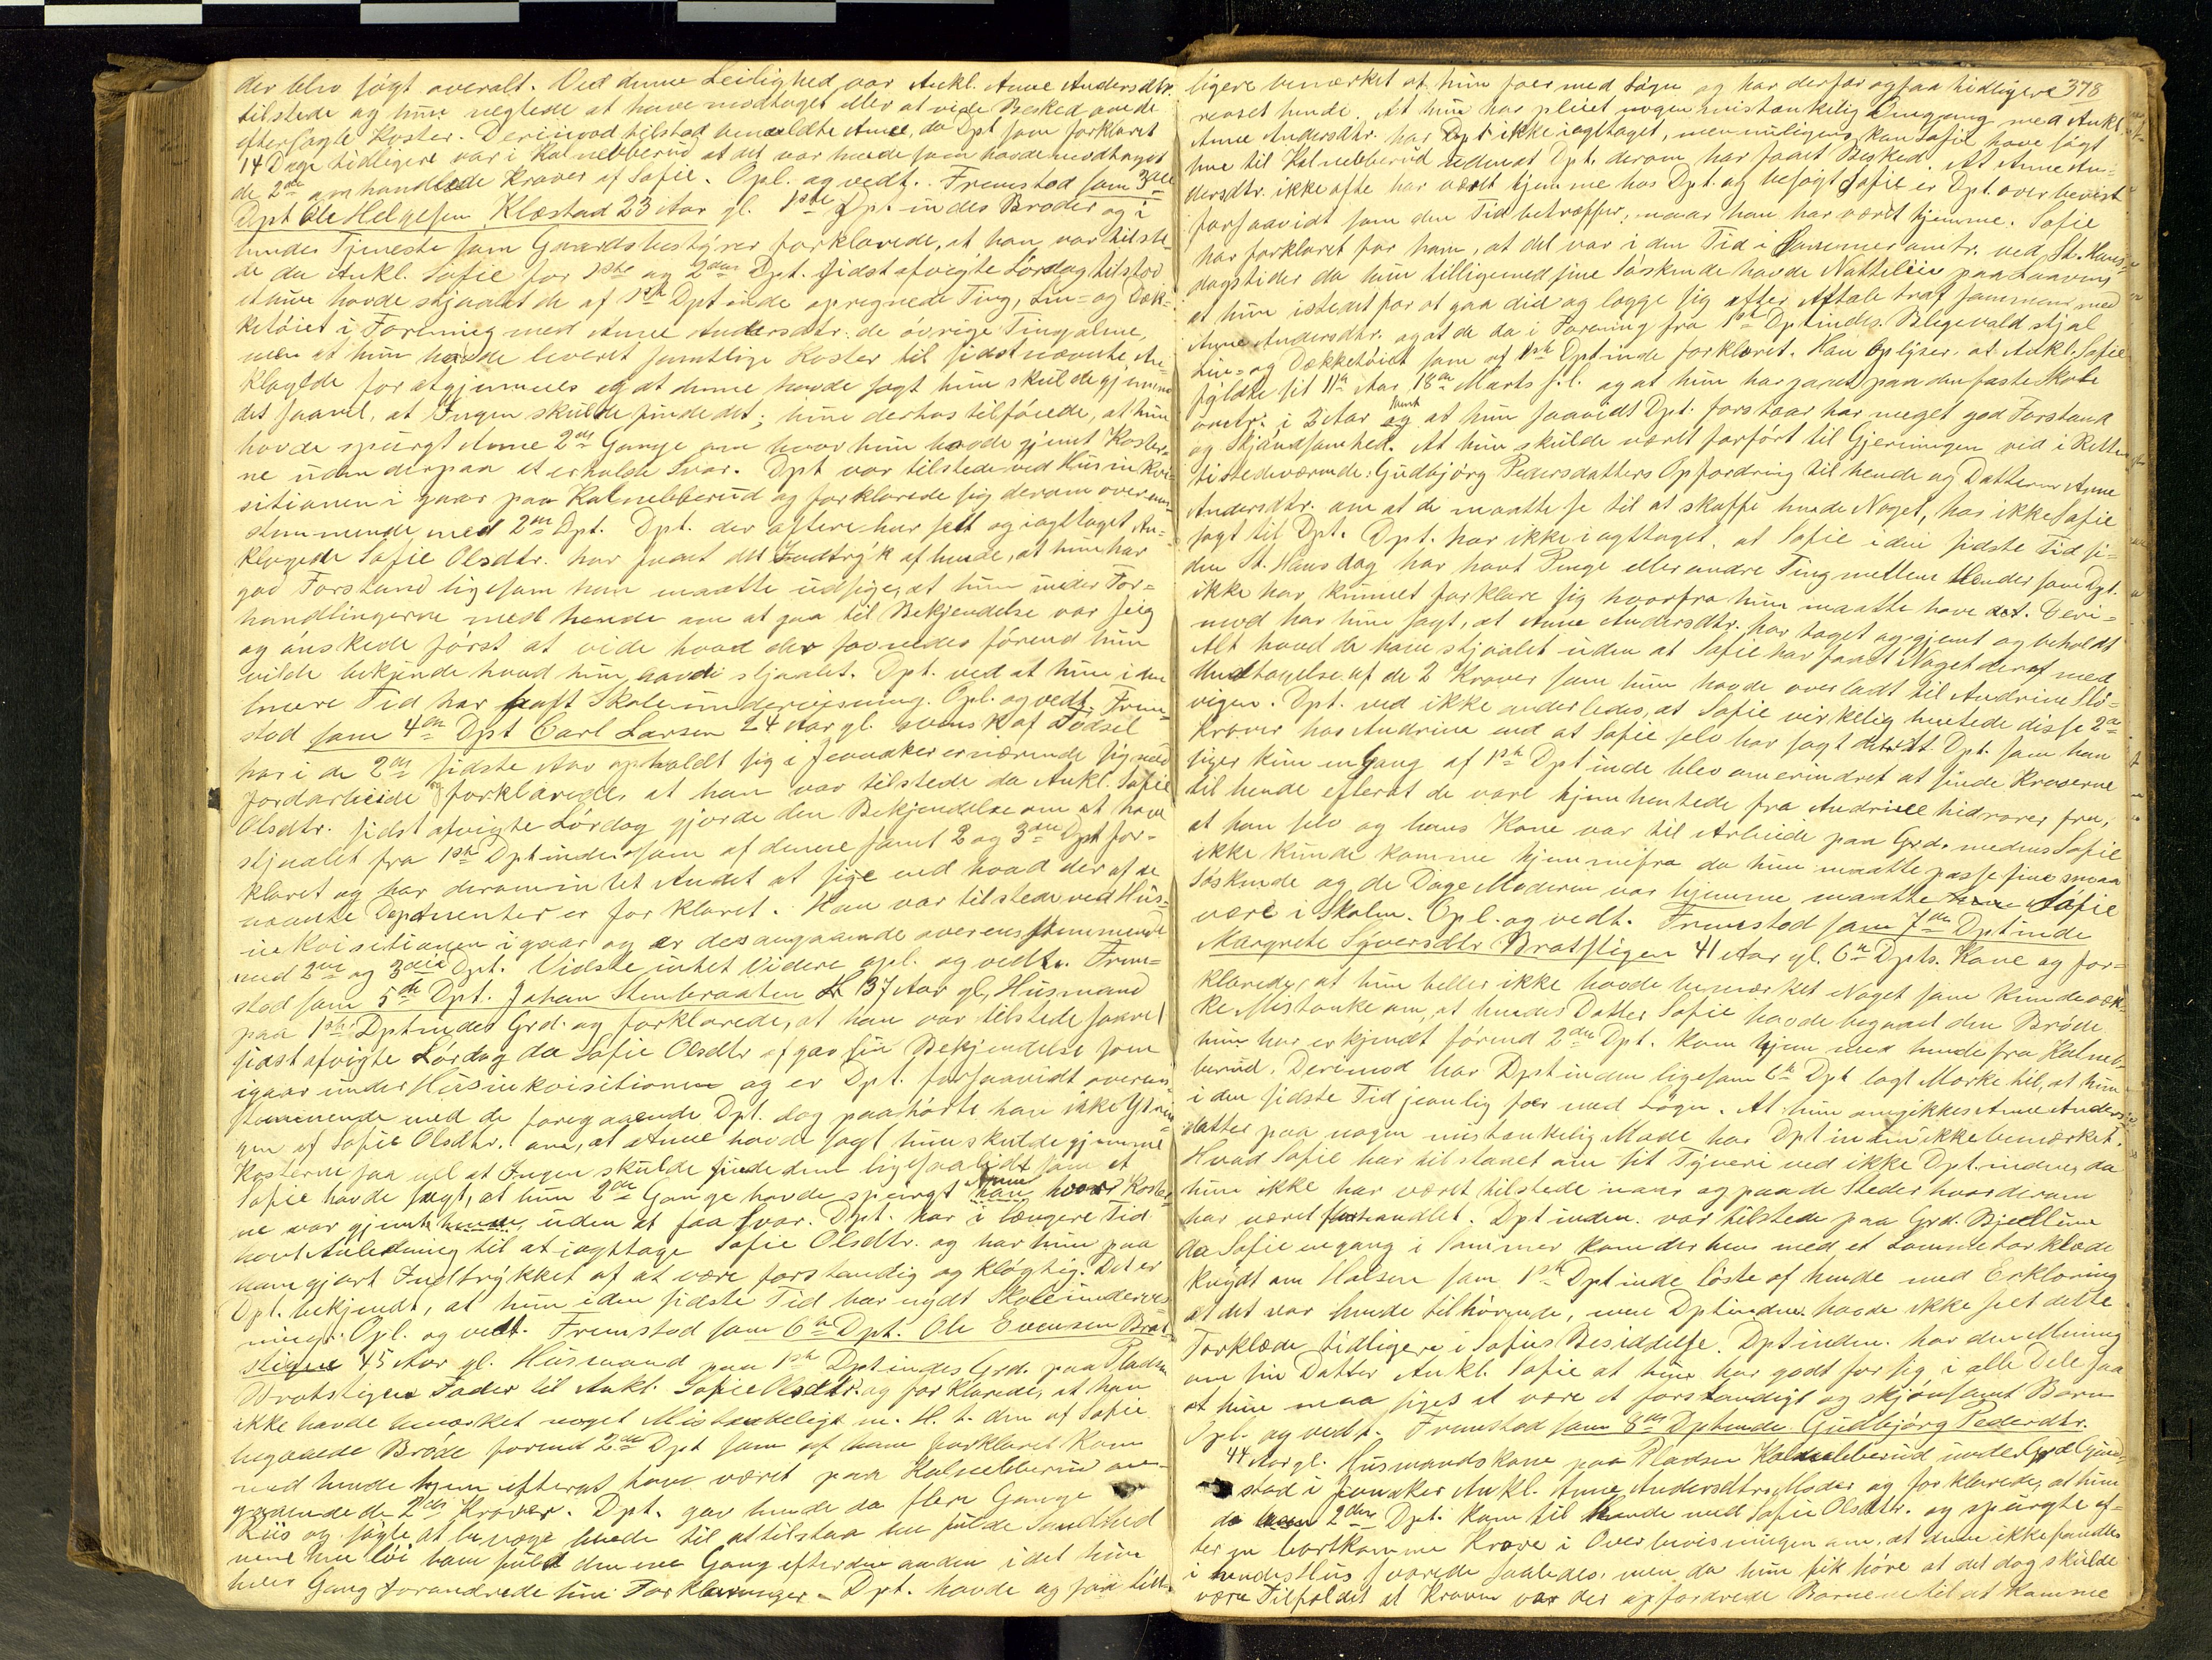 der blev søgt overalt. Ved denne Leilighed var Ankl. Anne Andersdtr.
tilstede og hun negtede at have modtaget eller at vide Besked om de
eftersøgte Koster. Derimod tilstod bemeldte Anne, da Dpt som forklaret
14 Dage tidligere var i Kalnebberud at det var hende som havde modtaget
de 2de omhandlede Kraver af Sofie. Opl. og vedt. Fremstod som 3die
Dpt Ole Helgesen Klæstad 23 Aar gl. 1ste Dpt.indes Broder og i
hendes Tjeneste som Gaardsbestyrer forklarede, at han var tilste
de da Ankl. Sofie for 1ste og 2den Dpt. sidstafvigte Lørdag tilstod
at hun havde stjaalet de af 1ste Dptinde opregnede Ting, Lin- og Dæk-
ketøiet i Forening med Anne Andersdtr. de øvrige Ting alene,
men at hun havde leveret samtlige Koster til sidstnævnte An-
klagede for at gjemmes og at denne havde sagt hun skulde gjemme
det saavel, at Ingen skulde finde det; hun derhos tilføiede, at hun
havde spurgt Anne 2de Gange om hvor hun havde gjemt Koster-
ne uden derpaa at erholde Svar. Dpt var tilstede ved Husinkvi-
sitionen i gaar paa Kalnebberud og forklarede sig derom overens-
stemmende med 2den Dpt. Dpt. der oftere har seet og iagttaget An-
klagede Sofie Olsdtr. har faaet det Indtryk af hende, at hun har
god Forstand ligesom han maatte udsige, at hun under For-
handlingerne med hende om at gaa til Bekjendelse var seig
og ønskede først at vide hvad der foreldes førend hun
vilde bekjende hvad hun havde stjaalet. Dpt. ved at hun i den
senere Tid har havt Skoleundervisning. Opl. og vedt. Frem-
stod som 4de Dpt Carl Larsen 24 Aar gl. svensk af Fødsel
har i de 2de sidste Aar opholdt sig i Jevnaker ernærende sig ved
Jordarbeide og forklarede, at han var tilstede da Ankl. Sofie
Olsdtr. sidstafvigte Lørdag gjorde den Bekjendelse om at have
stjaalet fra 1ste Dptinde som af denne samt 2 og 3die Dpt for-
klaret og har derom intet Andet at sige end hvad der af de
nævnte Deponenter er forklaret. Han var tilstede ved Hus-
inkvisitionen igaar og er desangaaende overensstemmende
med 2den og 3die Dpt. Vidste intet Videre opl. og vedt. Frem-
stod som 5te Dpt. Johan Stenbraaten 37 Aar gl, Husmand
paa 1ste Dptindes Grd. og forklarede, at han var tilstede saavel
sidstafvigte Lørdag da Sofie Olsdtr afgav sin Bekjendelse som
igaar under Husinkvisitionen og er Dpt. forsaavidt overens-
stemmende med de foregaaende Dpt. dog paahørte han ikke Ytrin-
gen af Sofie Olsdtr. om, at Anne havde sagt hun skulde gjemme
Kosterne saa vel at Ingen skulde finde dem ligesaalidt som at
Sofie havde sagt, at hun 2de Gange havde spurgt Anne hvor Koster-
ne var gjemt uden at faa Svar. Dpt. har i længere Tid
havt Anledning til at iagttage Sofie Olsdtr. og har hun paa
ham gjort Indtrykket af at være forstandig og kløgtig. Det er
Dpt. bekjendt, at hun i den sidste Tid har nydt Skoleundervis-
ning. Opl. og vedt. Fremstod som 6te Dpt. Ole Evensen Brat-
stigen 45 Aar gl. Husmand paa 1ste Dptindes Grd. paa Pladsen
Bratstigen Fader til Ankl. Sofie Olsdtr. og forklarede, at han
ikke havde bemærket noget Mistænkeligt m. H. t. den af Sofie
begaaede Brøde forend 2den Dpt som af ham forklaret kom
med hende hjem efterat have været paa Kalnebberud an-
gaaende de 2de Kraver. Dpt. gav hende da flere Gange
Riis og søgte at bevæge hende til at tilstaa den fulde Sandhed
men hun løi ham fuld den ene Gang efter den anden i det hun
hver Gang forandrede sine Forklaringer. Dpt. havde og saa tid-
378
ligere bemærket at hun foer med Løgn og har derfor ogsaa tidligere
revset hende. At hun har pleiet nogen mistænkelig Omgang med Ankl.
Anne Andersdtr. har Dpt ikke iagttaget, men muligens kan Sofie have søgt
hen til Kalnebberud uden at Dpt. derom har faaet Besked. At Anne An-
dersdtr. ikke ofte har været hjemme hos Dpt. og besøgt Sofie er Dpt. overbevist
forsaavidt som den Tid betræffer, naar han har været hjemme. Sofie
har forklaret for ham, at det var i den Tid i Sommer omtr. ved St. Hans-
dagstider da hun tilligemed sine Søskende havde Natteleie paa Laaven
at hun istedetfor at gaa did og lægge sig efter Aftale traf sammen med
Anne Andersdtr. og at de da i Forening fra 1ste Dptindes Blegevold stjal
Lin- og Dækketøiet som af 1ste Dptinde forklaret. Han oplyser at Ankl. Sofie
fyldte sit 11te Aar 18de Marts s. l. og at hun har gaaet paa den faste Skole
omtr. i 3 Aar samt at hun saavidt Dpt. forstaar har meget god Forstand
og Skjønsomhed. At hun skulde været forført til Gjerningen ved i Retten
tilstedeværende Gudbjørg Pedersdatters Opfordring til hende og Datteren Anne
Andersdtr. om at de maatte se til at skaffe hende Noget, har ikke Sofie
sagt til Dpt. Dpt. har ikke iagttaget, at Sofie i den sidste Tid si-
den St. Hansdag har havt Penge eller andre Ting mellem Hænder som Dpt.
ikke har kunnet forklare sig hvorfra hun maatte have det. Deri-
mod har hun sagt, at Anne Andersdtr. har taget og gjemt og beholdt
Alt hvad de have stjaalet uden at Sofie har faaet Noget deraf med
Undtagelse af de 2 Kraver som hun havde overladt til Andrine Slø-
vigen. Dpt. ved ikke anderledes, at Sofie virkelig hentede disse 2de
Kraver hos Andrine end at Sofie selv har sagt det. Dpt. som han
siger kun engang af 1ste Dptinde blev omerindret at sende Kraverne
til hende efterat de vare hjemhentede fra Andrine hidrører fra,
at han selv og hans Kone var til Arbeide paa Grd. medens Sofie
ikke kunde komme hjemmefra da hun maatte passe sine smaa
Søskende og de Dage Moderen var hjemme maatte Sofie
være i Skolen. Opl. og vedt. Fremstod som 7de Dptinde
Margrete Syversdtr Bratstigen 41 Aar gl. 6te Dpts. Kone og for-
klarede, at hun heller ikke havde bemærket Noget som kunde væk-
ke Mistanke om, at hendes Datter Sofie havde begaaet den Brøde
hun har erkjendt førend 2den Dpt. kom hjem med hende fra Kalneb-
berud. Derimod har Dptinden ligesom 6te Dpt lagt Mærke til, at hun
i den sidste Tid jevnlig foer med Løgn. At hun omgikkes Anne Anders-
datter paa nogen mistænkelig Maade har Dptinden ikke bemærket.
Hvad Sofie har tilstaaet om sit Tyveri ved ikke Dptinden, da
hun ikke har været tilstede naar og paa de Steder hvor derom
har været forhandlet. Dptinden. var tilstede paa Grd. Bjellum
da Sofie engang i Sommer kom derhen med et Lommetørklæde
knydt om Halsen som 1ste Dptinde løste af hende med Erklæring
at det var hende tilhørende, men Dptinden havde ikke seet dette
Tørklæde tidligere i Sofies Besiddelse. Dptinden. har den Mening
om sin Datter Ankl. Sofie at hun har godt for sig i alle Dele saa
at hun maa siges at være et forstandigt og skjønsomt Barn
Opl. og vedt. Fremstod som 8de Dptinde Gudbjørg Pedersdtr.
44 Aar gl. Husmandskone paa Pladsen Kalnebberud under Grd. Gjuv-
stad i Jevnaker Ankl. Anne Andersdtrs Moder og forklarede, at hun
da 2den Dpt. kom til hende med Sofie Olsdtr. og spurgte ef-
ter en bortkommen Krave i Overbevisningen om, at denne ikke fandtes
i hendes Hus svarede saaledes, men da hun fik høre at det dog skulde
være Tilfældet at Kraven var der opfordrede Børnene til at komme